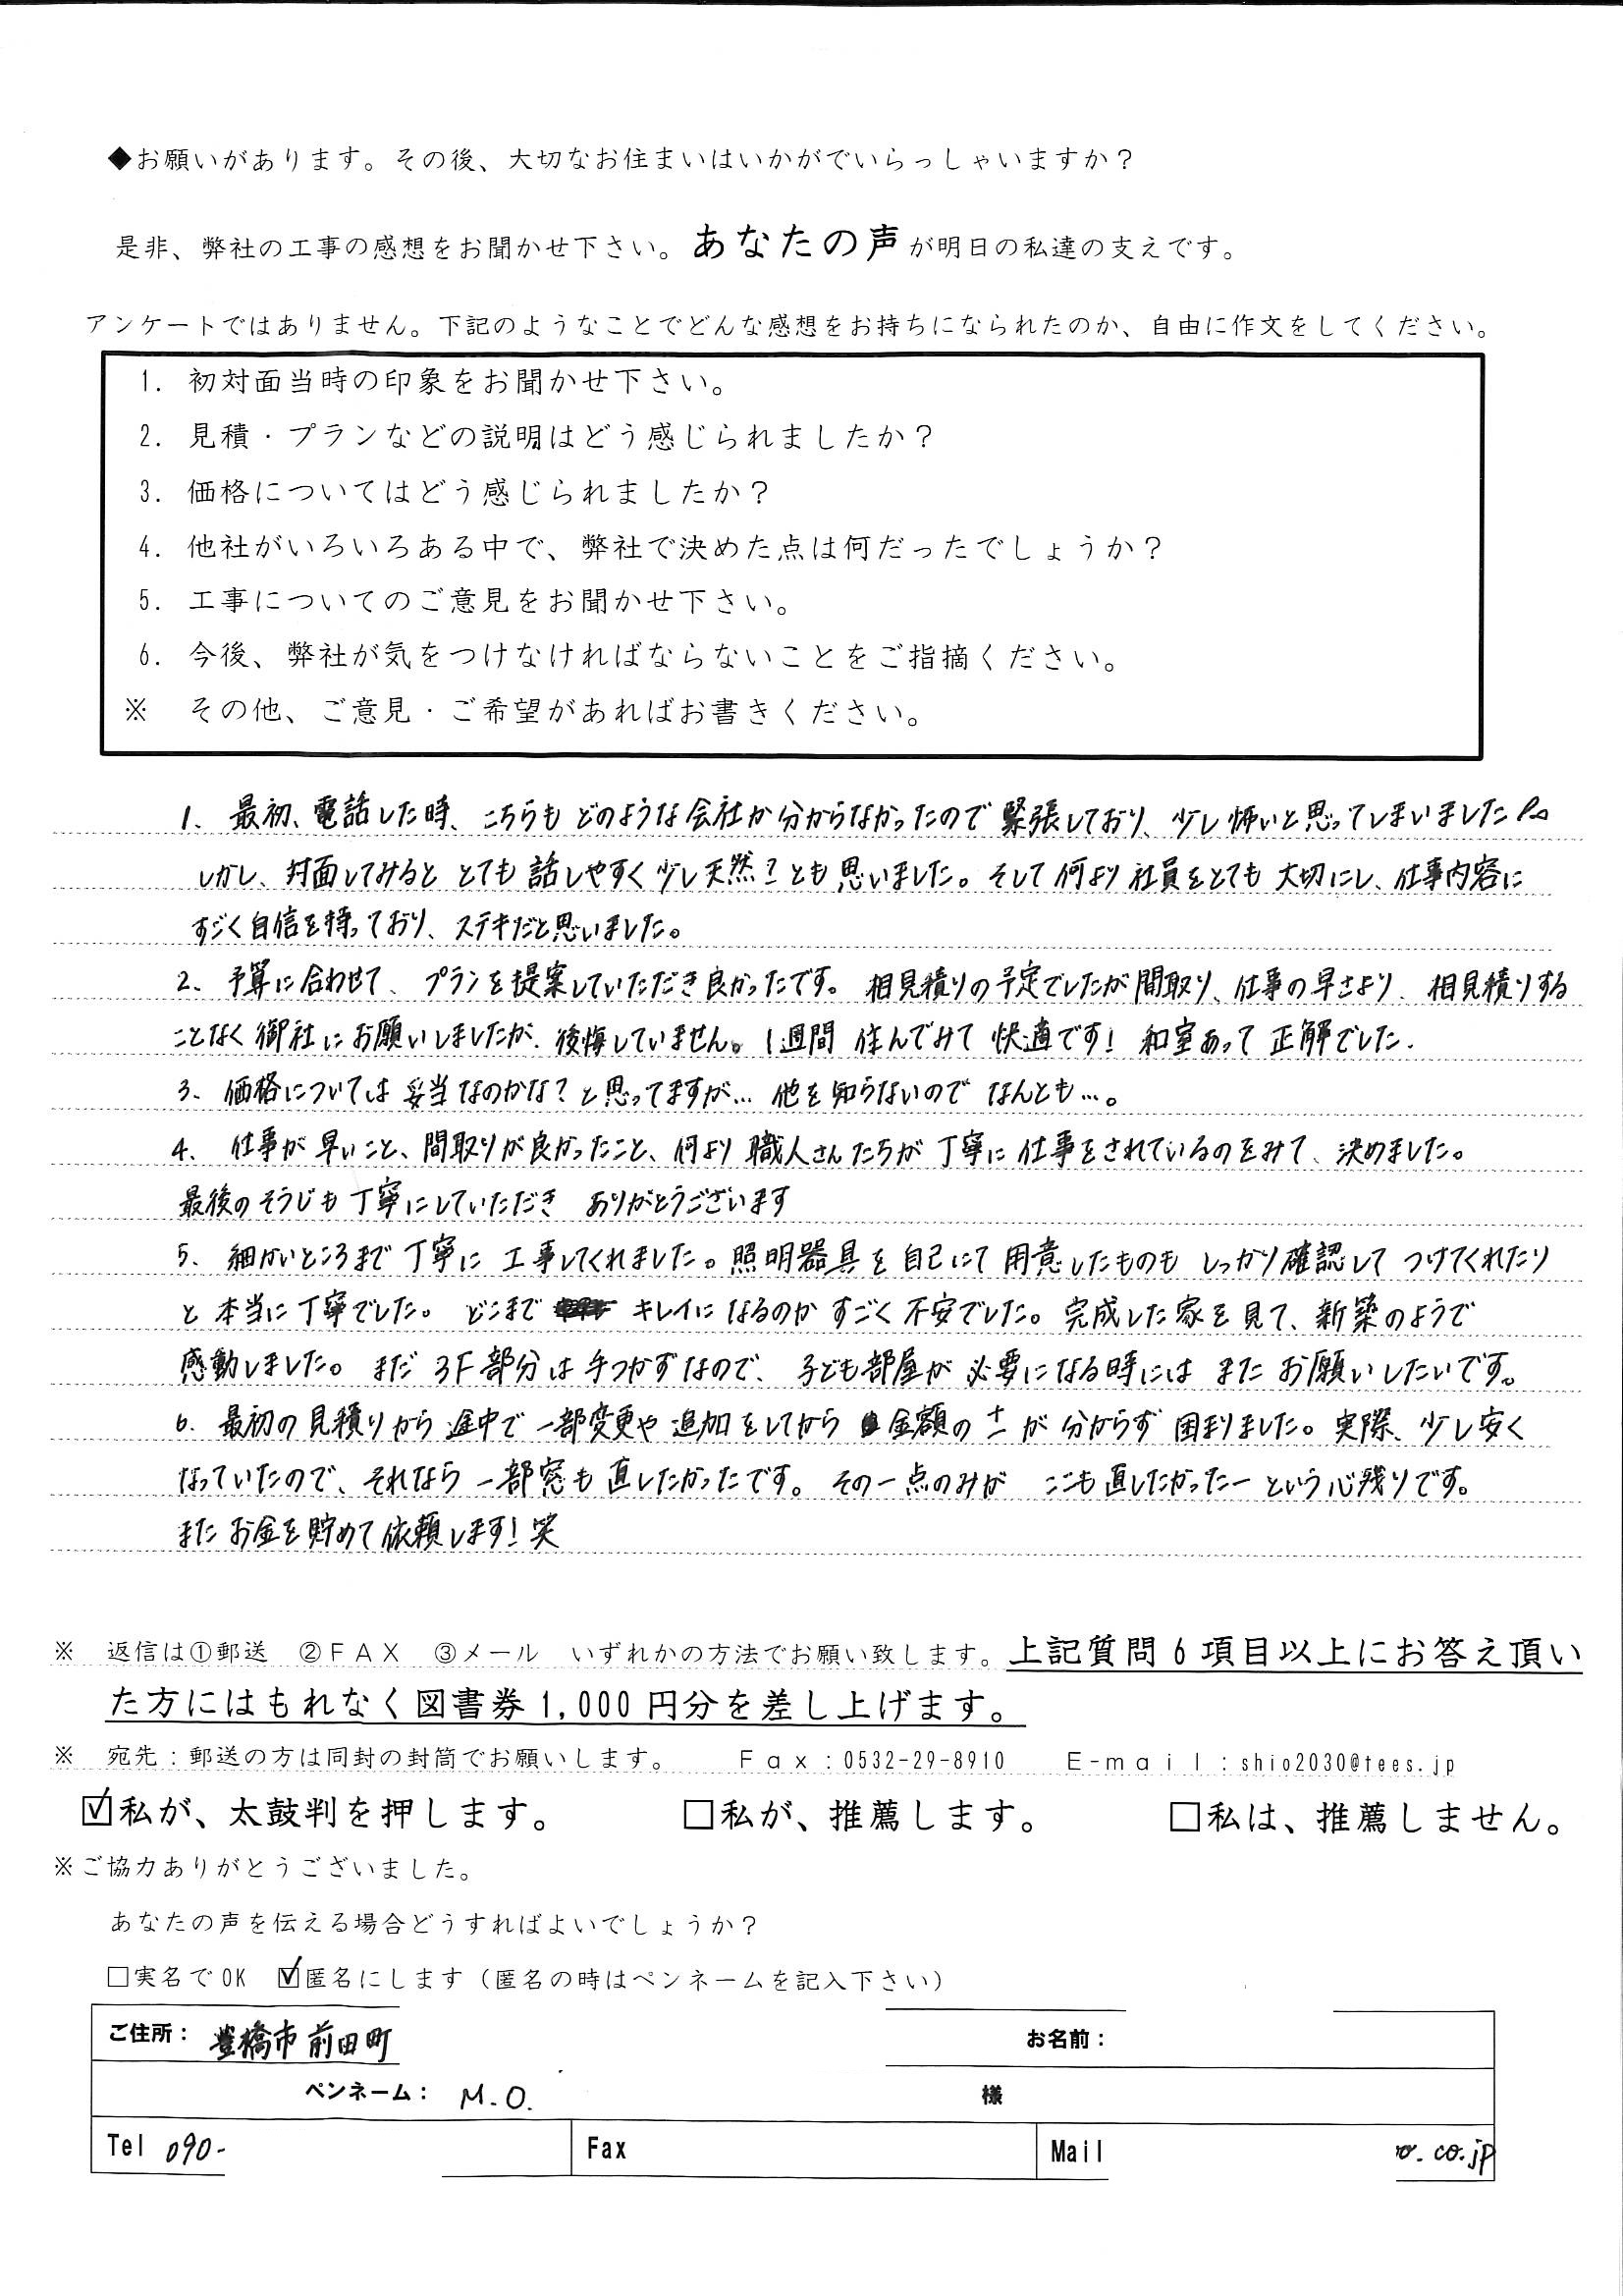 ◆お願いがあります。その後、大切なお住まいはいかがでいらっしゃいますか？
是非、弊社の工事の感想をお聞かせ下さい。あなたの声が明日の私達の支えです。
アンケートではありません。下記のようなことでどんな感想をお持ちになられたのか、自由に作文をしてください。
1. 初対面当時の印象をお聞かせ下さい。
2. 見積・プランなどの説明はどう感じられましたか？
3. 価格についてはどう感じられましたか？
4. 他社がいろいろある中で、弊社で決めた点は何だったでしょうか？
5. 工事についてのご意見をお聞かせ下さい。
6. 今後、弊社が気をつけなければならないことをご指摘ください。
※ その他、ご意見・ご希望があればお書きください。
1、最初、電話した時、こちらもどのような会社か分からなかったので緊張しており、少し怖いと思ってしまいました。
しかし、対面してみると とても話しやすく少し天然？とも思いました。そして何より社員をとても大切にし、仕事内容に
すごく自信を持っており、ステキだと思いました。
2、予算に合わせて、プランを提案していただき良かったです。相見積りの予定でしたが間取り、仕事の早さより、相見積りする
ことなく御社にお願いしましたが、後悔していません。1週間 住んでみて 快適です！ 和室あって 正解でした.
3、価格については妥当なのかな？と思ってますが… 他を知らないので なんとも…。
4、仕事が早いこと、間取りが良かったこと、何より職人さんたちが丁寧に仕事をされているのをみて、決めました。
最後のそうじも丁寧にしていただき ありがとうございます
5、細かいところまで丁寧に工事してくれました。照明器具を自己にて用意したものもしっかり確認してつけてくれたり
と本当に丁寧でした。どこまで キレイになるのかすごく不安でした。完成した家を見て、新築のようで
感動しました。まだ3F部分は手つかずなので、子ども部屋が必要になる時にはまたお願いしたいです。
6. 最初の見積りから途中で一部変更や追加をしてから 金額の±が分からず困りました。実際、少し安く
なっていたので、それなら一部窓も直したかったです。その一点のみが ここも直したかったーという心残りです。
またお金を貯めて依頼します！笑
※ 返信は①郵送 ②ＦＡＸ ③メール いずれかの方法でお願い致します。上記質問6項目以上にお答え頂い
た方にはもれなく図書券1,000円分を差し上げます。
※ 宛先：郵送の方は同封の封筒でお願いします。 Ｆａｘ：0532-29-8910 Ｅ-ｍａｉｌ：shio2030@tees.jp
☑私が、太鼓判を押します。 □私が、推薦します。 □私は、推薦しません。
※ご協力ありがとうございました。
あなたの声を伝える場合どうすればよいでしょうか？
□実名でOK ☑匿名にします（匿名の時はペンネームを記入下さい）
ご住所： 豊橋市前田町 お名前：
ペンネーム： M.O. 様
Tel 090- Fax Mail o.co.jp